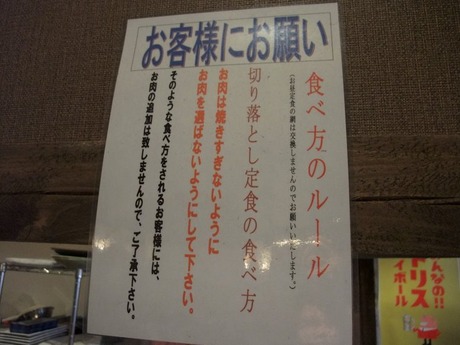 お客様にお願い
食べ方のルール
(お昼定食の網は交換しませんのでお願いいたします。)
切り落とし定食の食べ方
お肉は焼きすぎないように
お肉を選ばないようにして下さい。
そのような食べ方をされるお客様には、
お肉の追加は致しませんので、ご了承下さい。
んなの!!
トリス
イボール